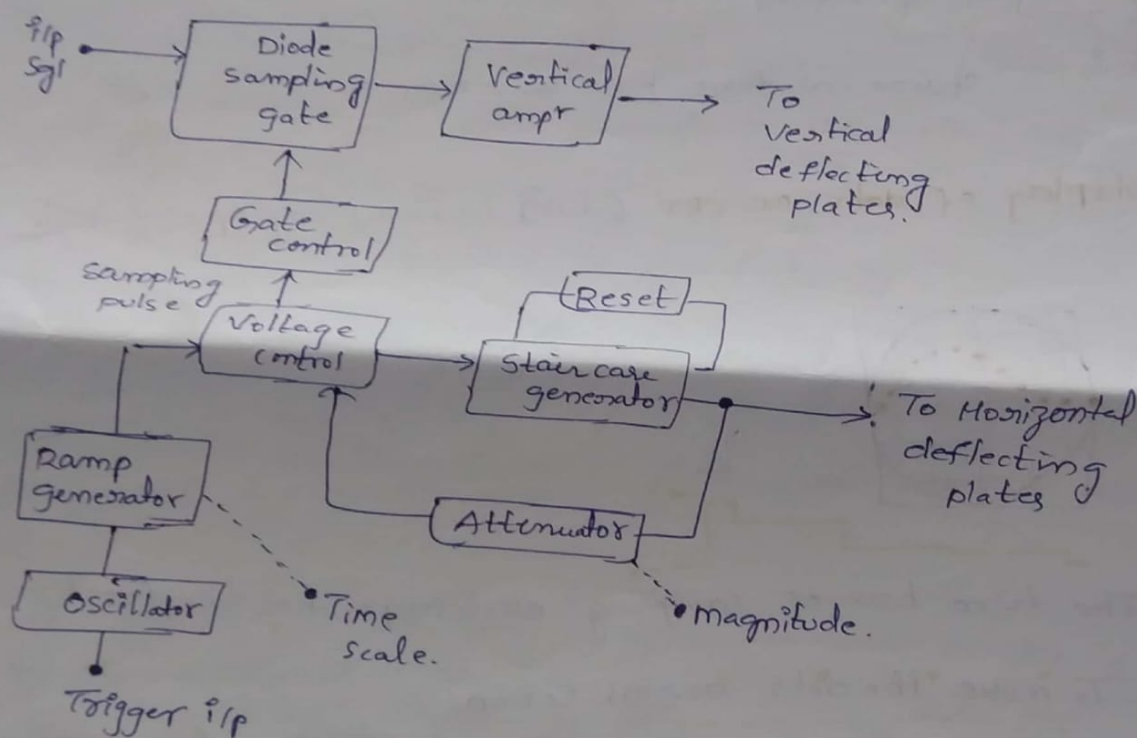 i/p
Sgl
Diode
sampling
gate
Vertical
ampr
To
vertical
deflecting
plates.
Gate
control
Sampling
pulse
Voltage
control
Reset
Staircase
generator
To Horizontal
deflecting
plates
Ramp
generator
Attenuator
Oscillator
Time
scale.
Magnitude.
Trigger i/p